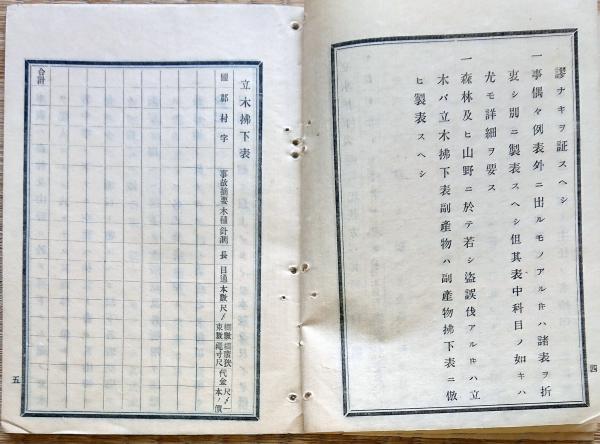 謬ナキヲ証スヘシ
一事偶々例表外ニ出ルモノアル片ハ諸表ヲ折
衷シ別ニ製表スヘシ但其表中科目ノ如キハ
尤モ詳細ヲ要ス
一森林及ヒ山野ニ於テ若シ盗誤伐アル片ハ立
木バ立木拂下表副産物ハ副産物拂下表ニ倣
ヒ製表スヘシ
四
立木拂下表
國郡村字
事故摘要木種針濶長目通本數尺〆
代金
合計
五